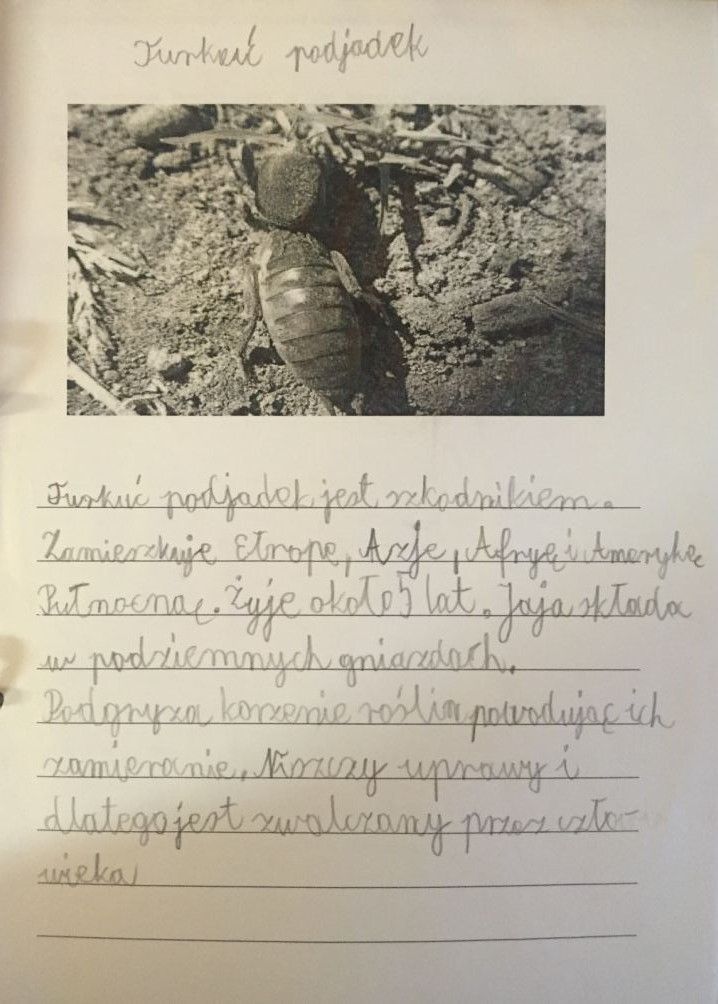 Turkuć podjadek
Turkuć podjadek jest szkodnikiem.
Zamieszkuje Etropę, Azje, Afryę i Amerykę
Pułnocną. Żyje około 5 lat. Jaja składa
w podziemnych gniazdach.
Podgryza korzenie roślin powodując ich
zamieranie. Niszczy uprawy i
dlatego jest zwalczany przez czło-
wieka